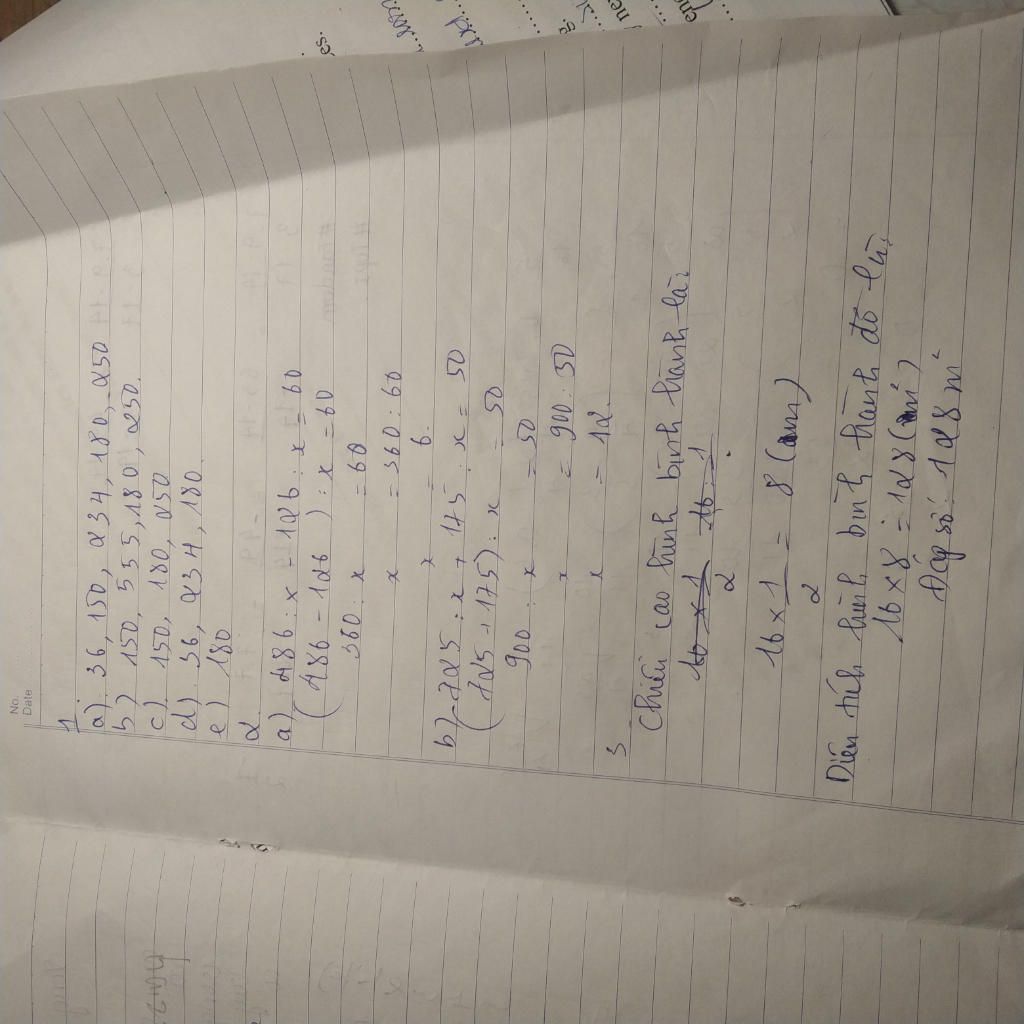 No.
Date
1
a) 36, 150, 234, 180, 250
b) 150, 555, 180, 250.
c) 150, 180, 250
d) 36, 234, 180.
e) 180
2
a) 486 : x - 126 : x = 60
(486 - 126) : x = 60
360 : x = 60
x = 360 : 60
x = 6.
b) 725 : x + 175 : x = 50
(725 + 175) : x = 50
900 : x = 50
x = 900 : 50
x = 12.
3
Chiều cao hình bình hành là:
16 × 1/2 16 : 1
16 × 1/2 = 8 (m)
Diện tích hình bình hành đó là:
16 × 8 = 128 (m²)
Đáp số: 128 m²